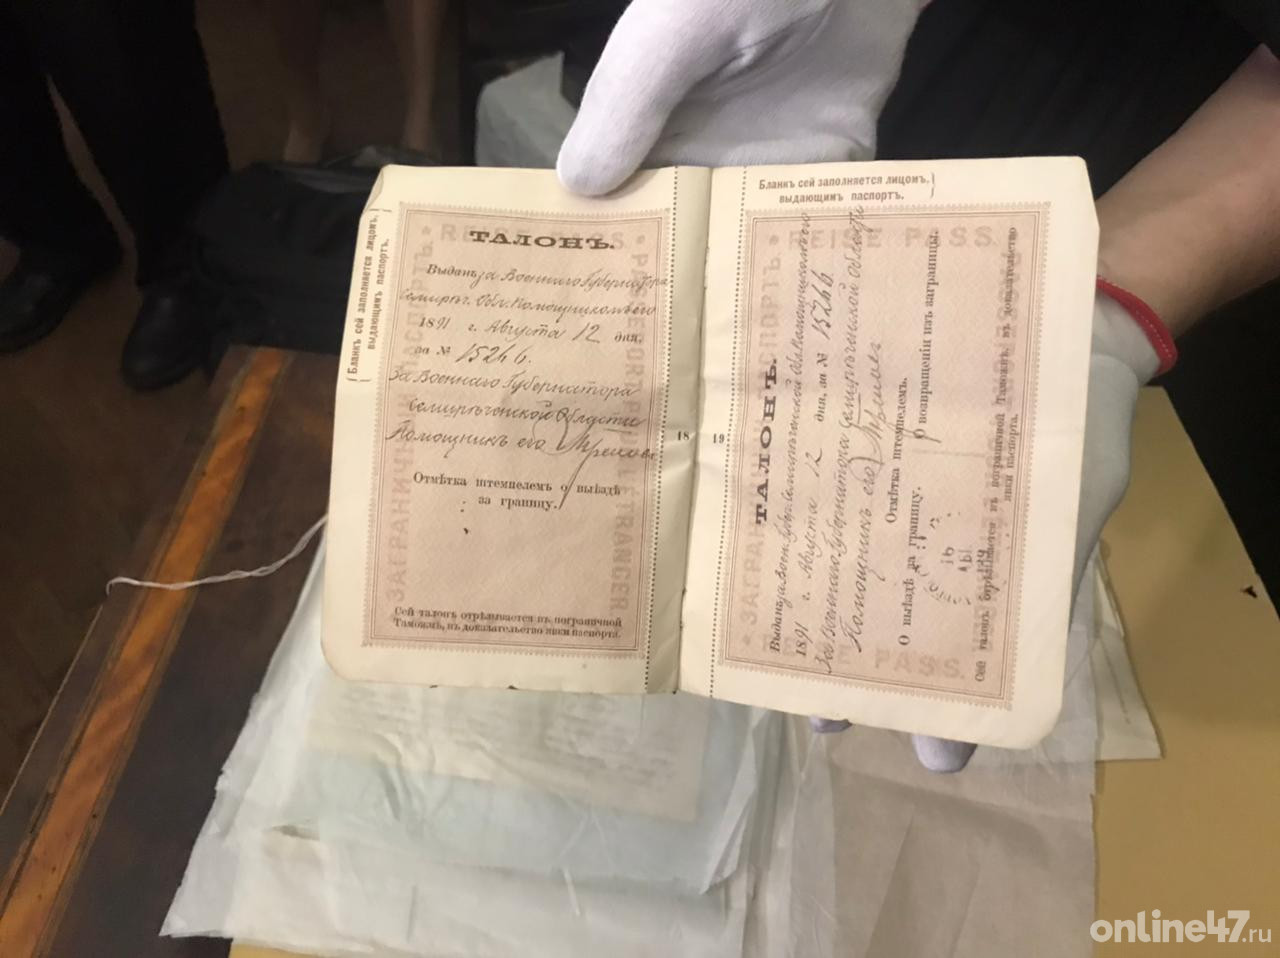 Бланкъ сей заполняется лицомъ,
выдающимъ паспортъ.
REISE PASS
PASSEPORT POUR L'ETRANGER
ЗАГРАНИЧНЫЙ ПАСПОРТЪ
ТАЛОНЪ.
Выданъ за Военнаго Губернатора
Семирѣч. Обл. Помощникомъ его
1891 г. Августа 12 дня,
за № 15246.
За Военнаго Губернатора
Семирѣченской Области
Помощникъ его
Отмѣтка штемпелемъ о выѣздѣ
за границу.
Сей талонъ отрѣзывается въ пограничной
Таможнѣ, въ доказательство явки паспорта.
18
19
Бланкъ сей заполняется лицомъ,
выдающимъ паспортъ.
REISE PASS
ЗАГРАНИЧНЫЙ ПАСПОРТЪ
ТАЛОНЪ.
Выданъ за Воен. Губер. Семирѣченской Обл. Помощникомъ его
1891 г. Августа 12 дня, за № 15246.
За Военнаго Губернатора Семирѣченской Области
Помощникъ его
Отмѣтка штемпелемъ.
О выѣздѣ за границу.
О возвращеніи изъ заграницы.
Сей талонъ отрѣзывается въ пограничной Таможнѣ, въ доказательство
явки паспорта.
online47.ru